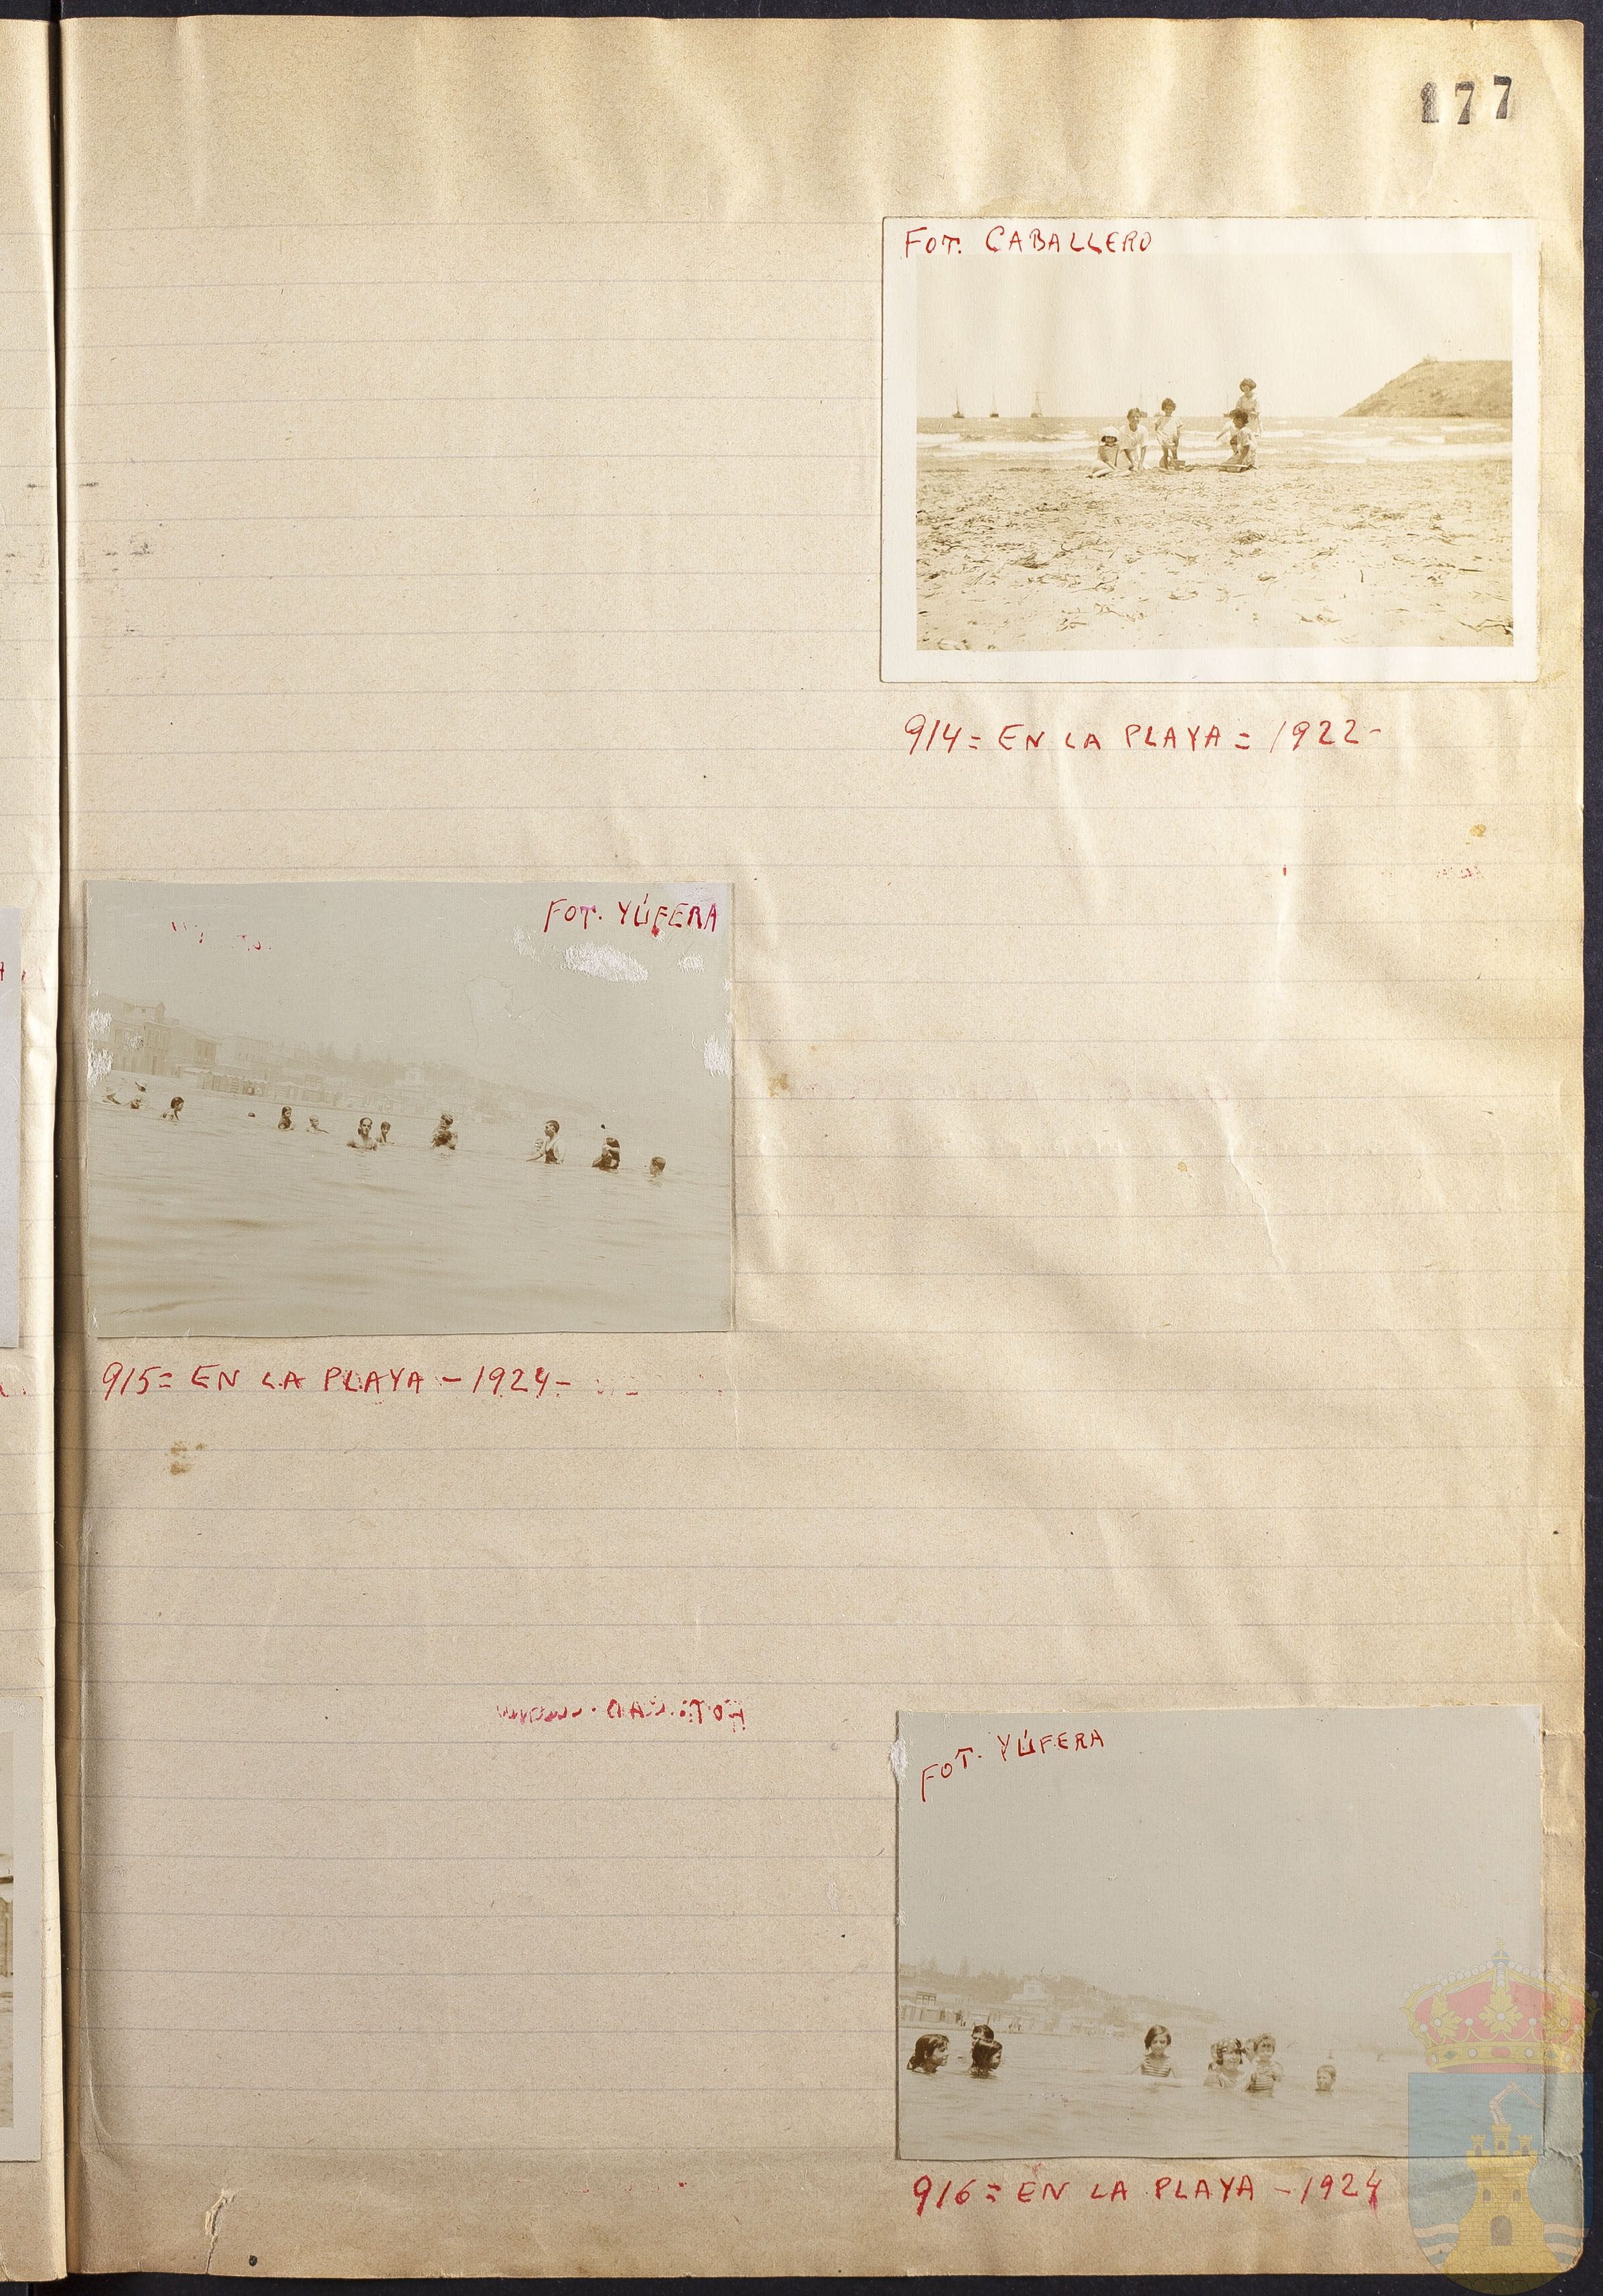 177
FOT. CABALLERO
914= EN LA PLAYA = 1922-
FOT. YÚFERA
915= EN LA PLAYA - 1924-
FOT. YÚFERA
916= EN LA PLAYA - 1924